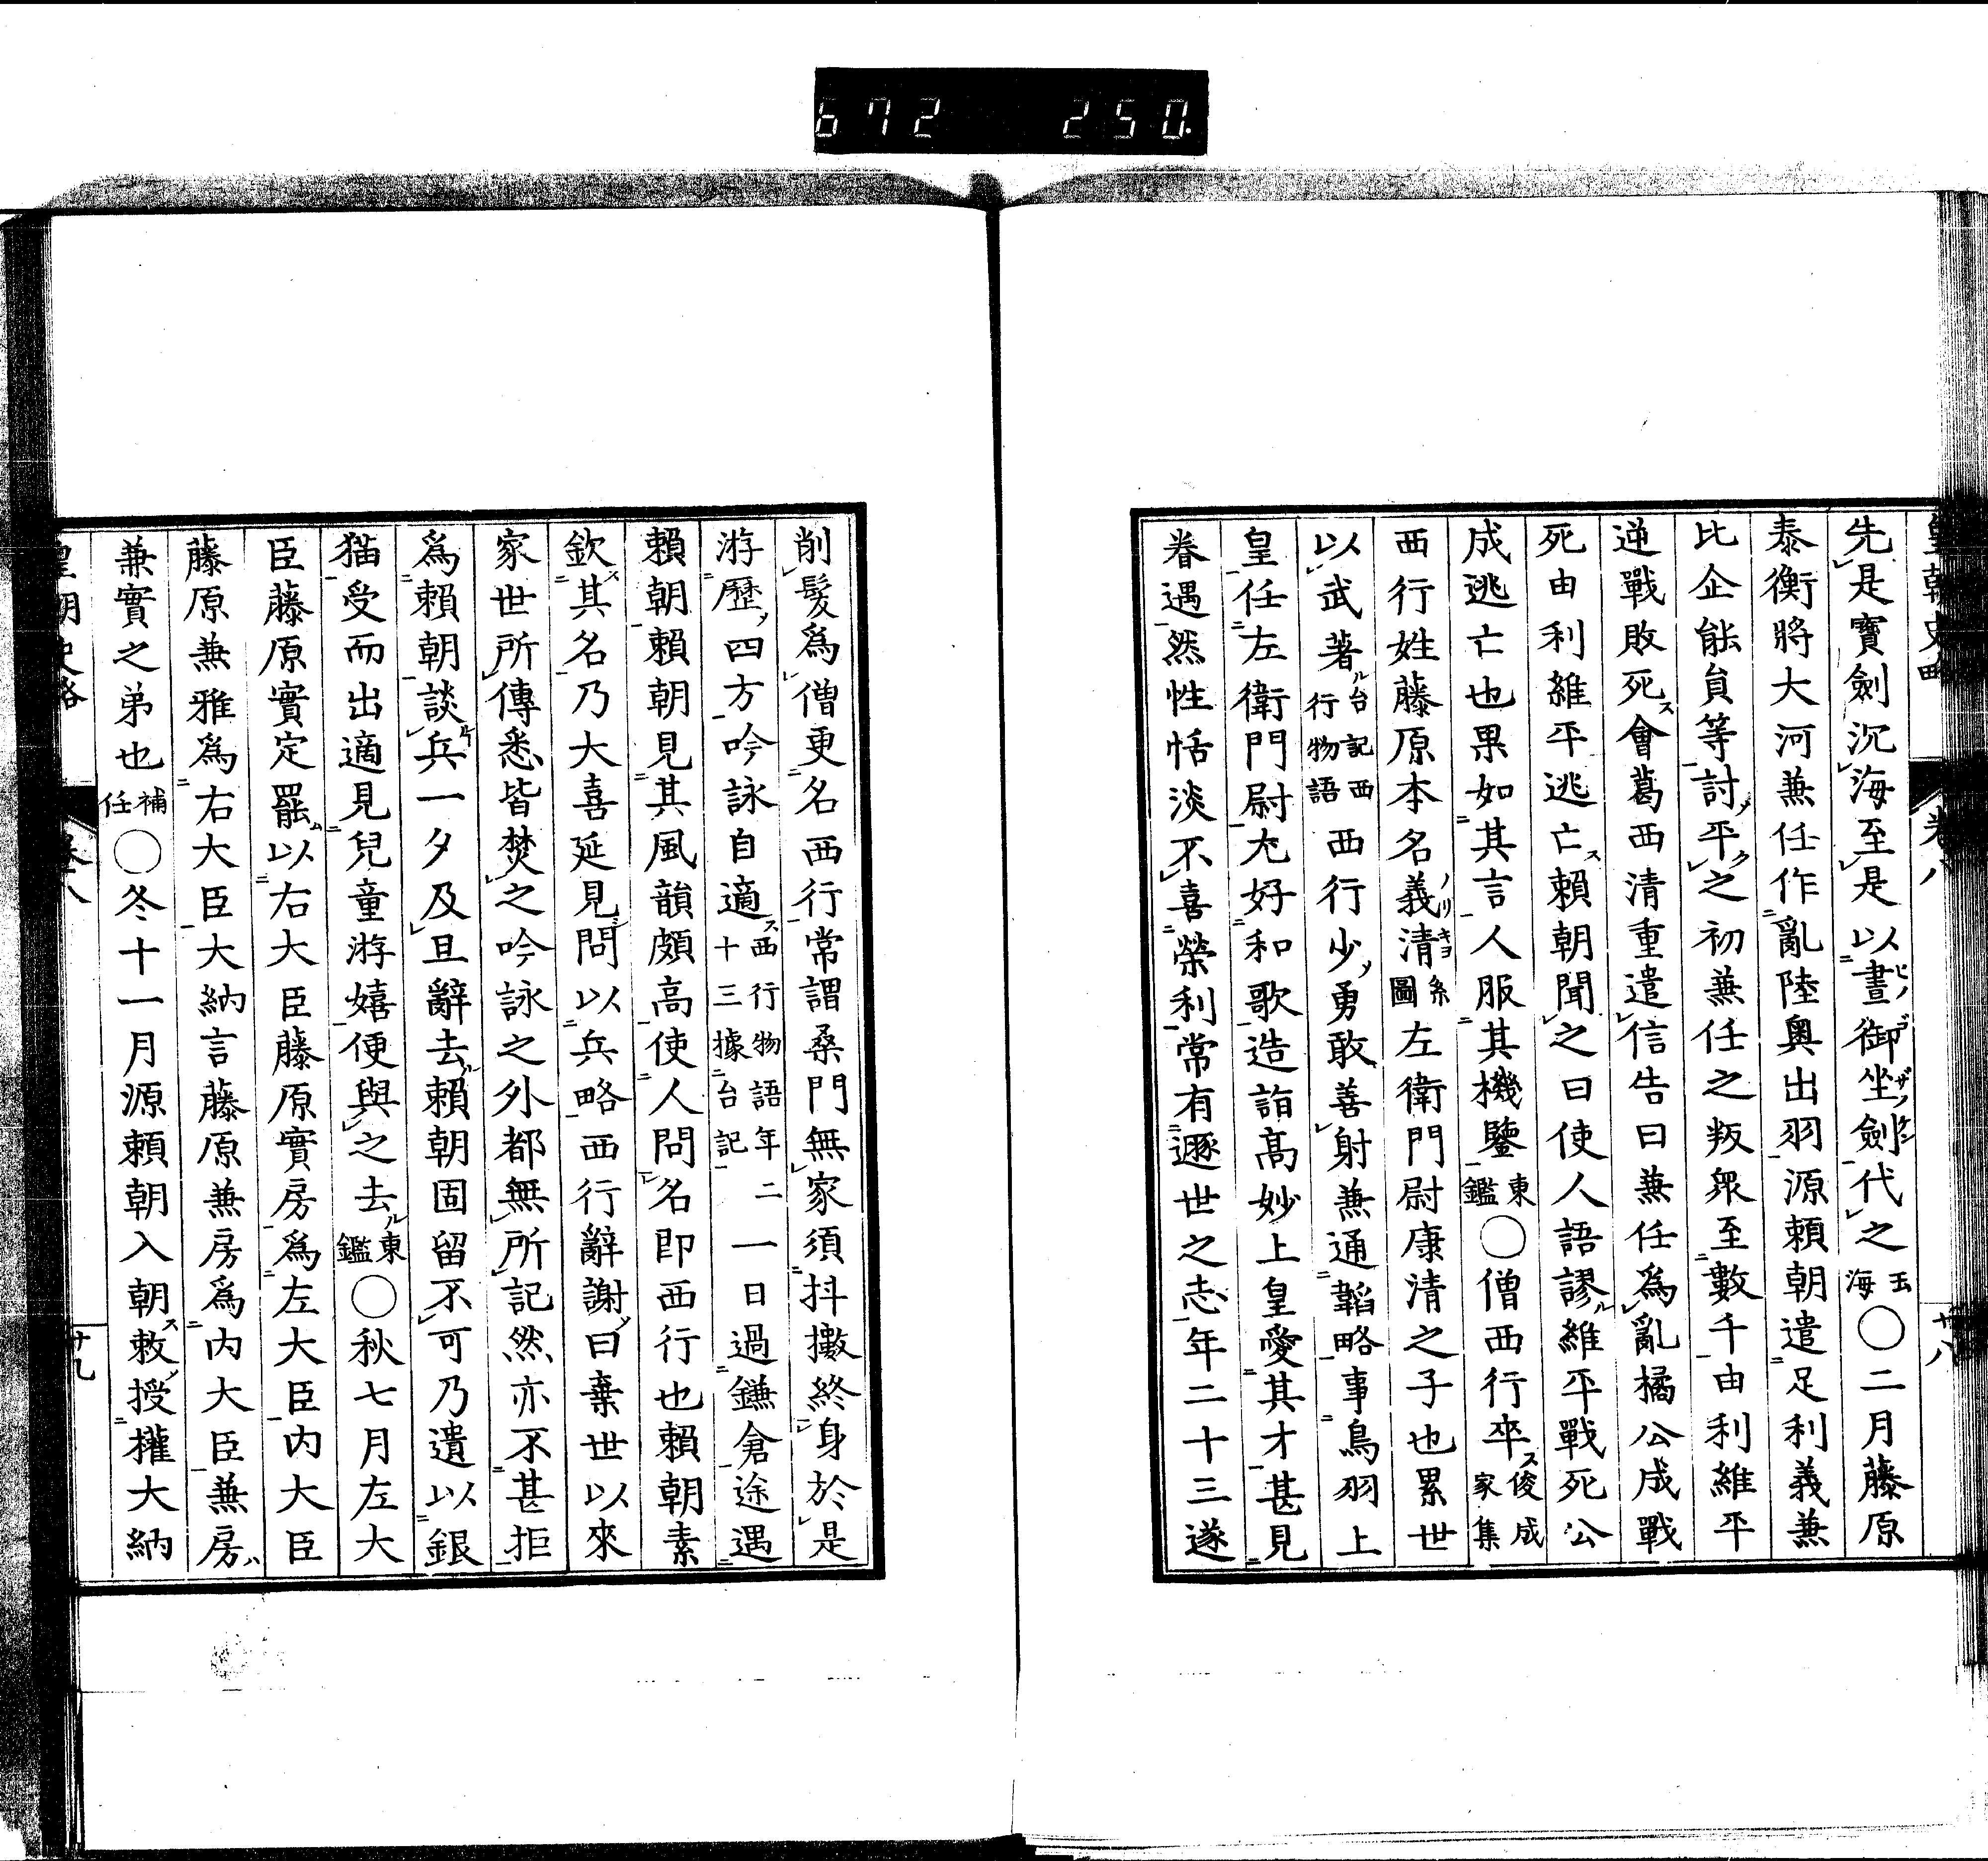 672 250.
皇朝史略 卷八 廿八
先是寶劍沉海至是以晝御坐劍代之玉海〇二月藤原
泰衡將大河兼任作亂陸奧出羽源賴朝遣足利義兼
比企能員等討平之初兼任之叛衆至數千由利維平
逆戰敗死會葛西清重遣信告曰兼任爲亂橘公成戰
死由利維平逃亡賴朝聞之曰使人語謬維平戰死公
成逃亡也果如其言人服其機鑒東鑑〇僧西行卒俊成家集
西行姓藤原本名義清系圖左衛門尉康清之子也累世
以武著台記西行物語西行少勇敢善射兼通韜略事鳥羽上
皇任左衛門尉尤好和歌造詣高妙上皇愛其才甚見
眷遇然性恬淡不喜榮利常有遯世之志年二十三遂
削髮爲僧更名西行常謂桑門無家須抖擻終身於是
游歷四方吟詠自適西行物語年二十三據台記一日過鎌倉途遇
賴朝賴朝見其風韻頗高使人問名卽西行也賴朝素
欽其名乃大喜延見問以兵略西行辭謝曰棄世以來
家世所傳悉皆焚之吟詠之外都無所記然亦不甚拒
爲賴朝談兵一夕及旦辭去賴朝固留不可乃遺以銀
猫受而出適見兒童游嬉便與之去東鑑〇秋七月左大
臣藤原實定罷以右大臣藤原實房爲左大臣內大臣
藤原兼雅爲右大臣大納言藤原兼房爲內大臣兼房
兼實之弟也補任〇冬十一月源賴朝入朝敕授權大納
皇朝史略 卷八 廿九